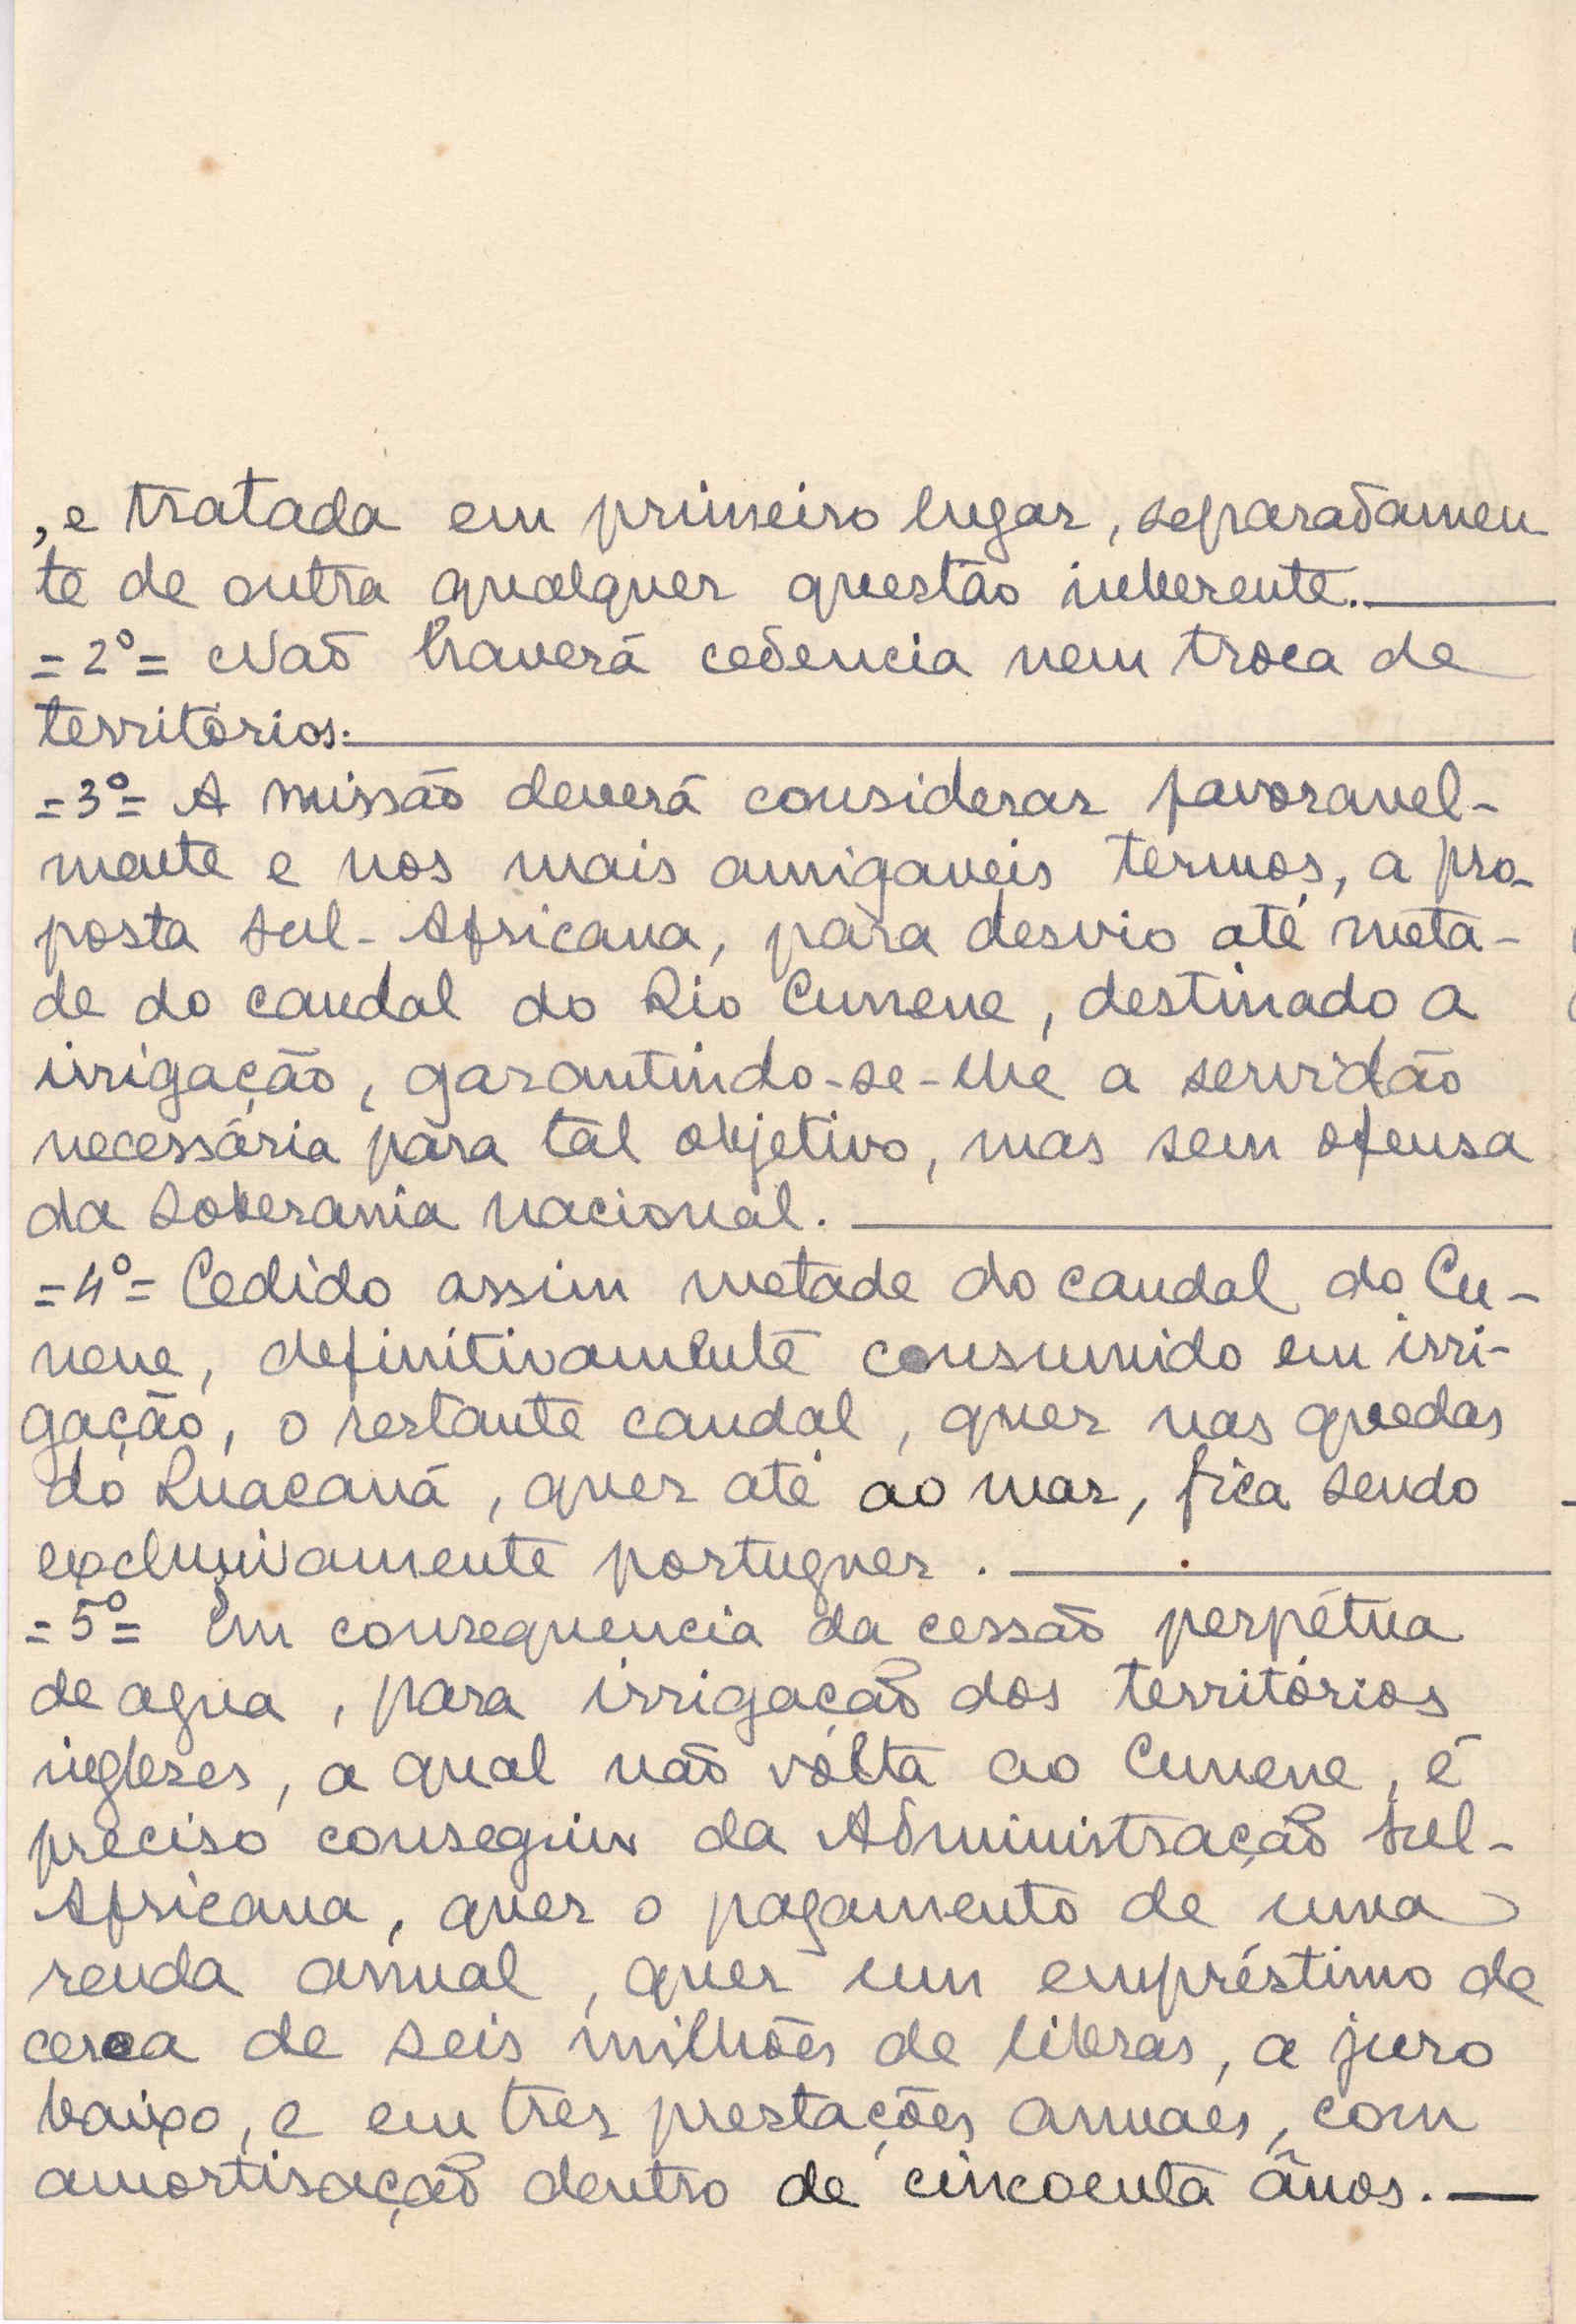 , e tratada em primeiro lugar, separadamen-
te de outra qualquer questão inherente.
=2º= Não haverá cedencia nem troca de
territórios.
=3º= A missão deverá considerar favoravel-
mente e nos mais amigaveis termos, a pro-
posta Sul-Africana, para desvio até meta-
de do caudal do Rio Cunene, destinado a
irrigação, garantindo-se-lhe a servidão
necessária para tal objetivo, mas sem ofensa
da soberania nacional.
=4º= Cedido assim metade do caudal do Cu-
nene, definitivamente consumido em irri-
gação, o restante caudal, quer nas quedas
do Ruacaná, quer até ao mar, fica sendo
exclusivamente portuguez.
=5º= Em consequencia da cessão perpétua
de agua, para irrigação dos territórios
inglezes, a qual não vólta ao Cunene, é
preciso conseguir da Administração Sul-
Africana, quer o pagamento de uma
renda annual, quer um empréstimo de
cerca de seis milhões de libras, a juro
baixo, e em tres prestações anuaes, com
amortisação dentro de cincoenta ãnos.